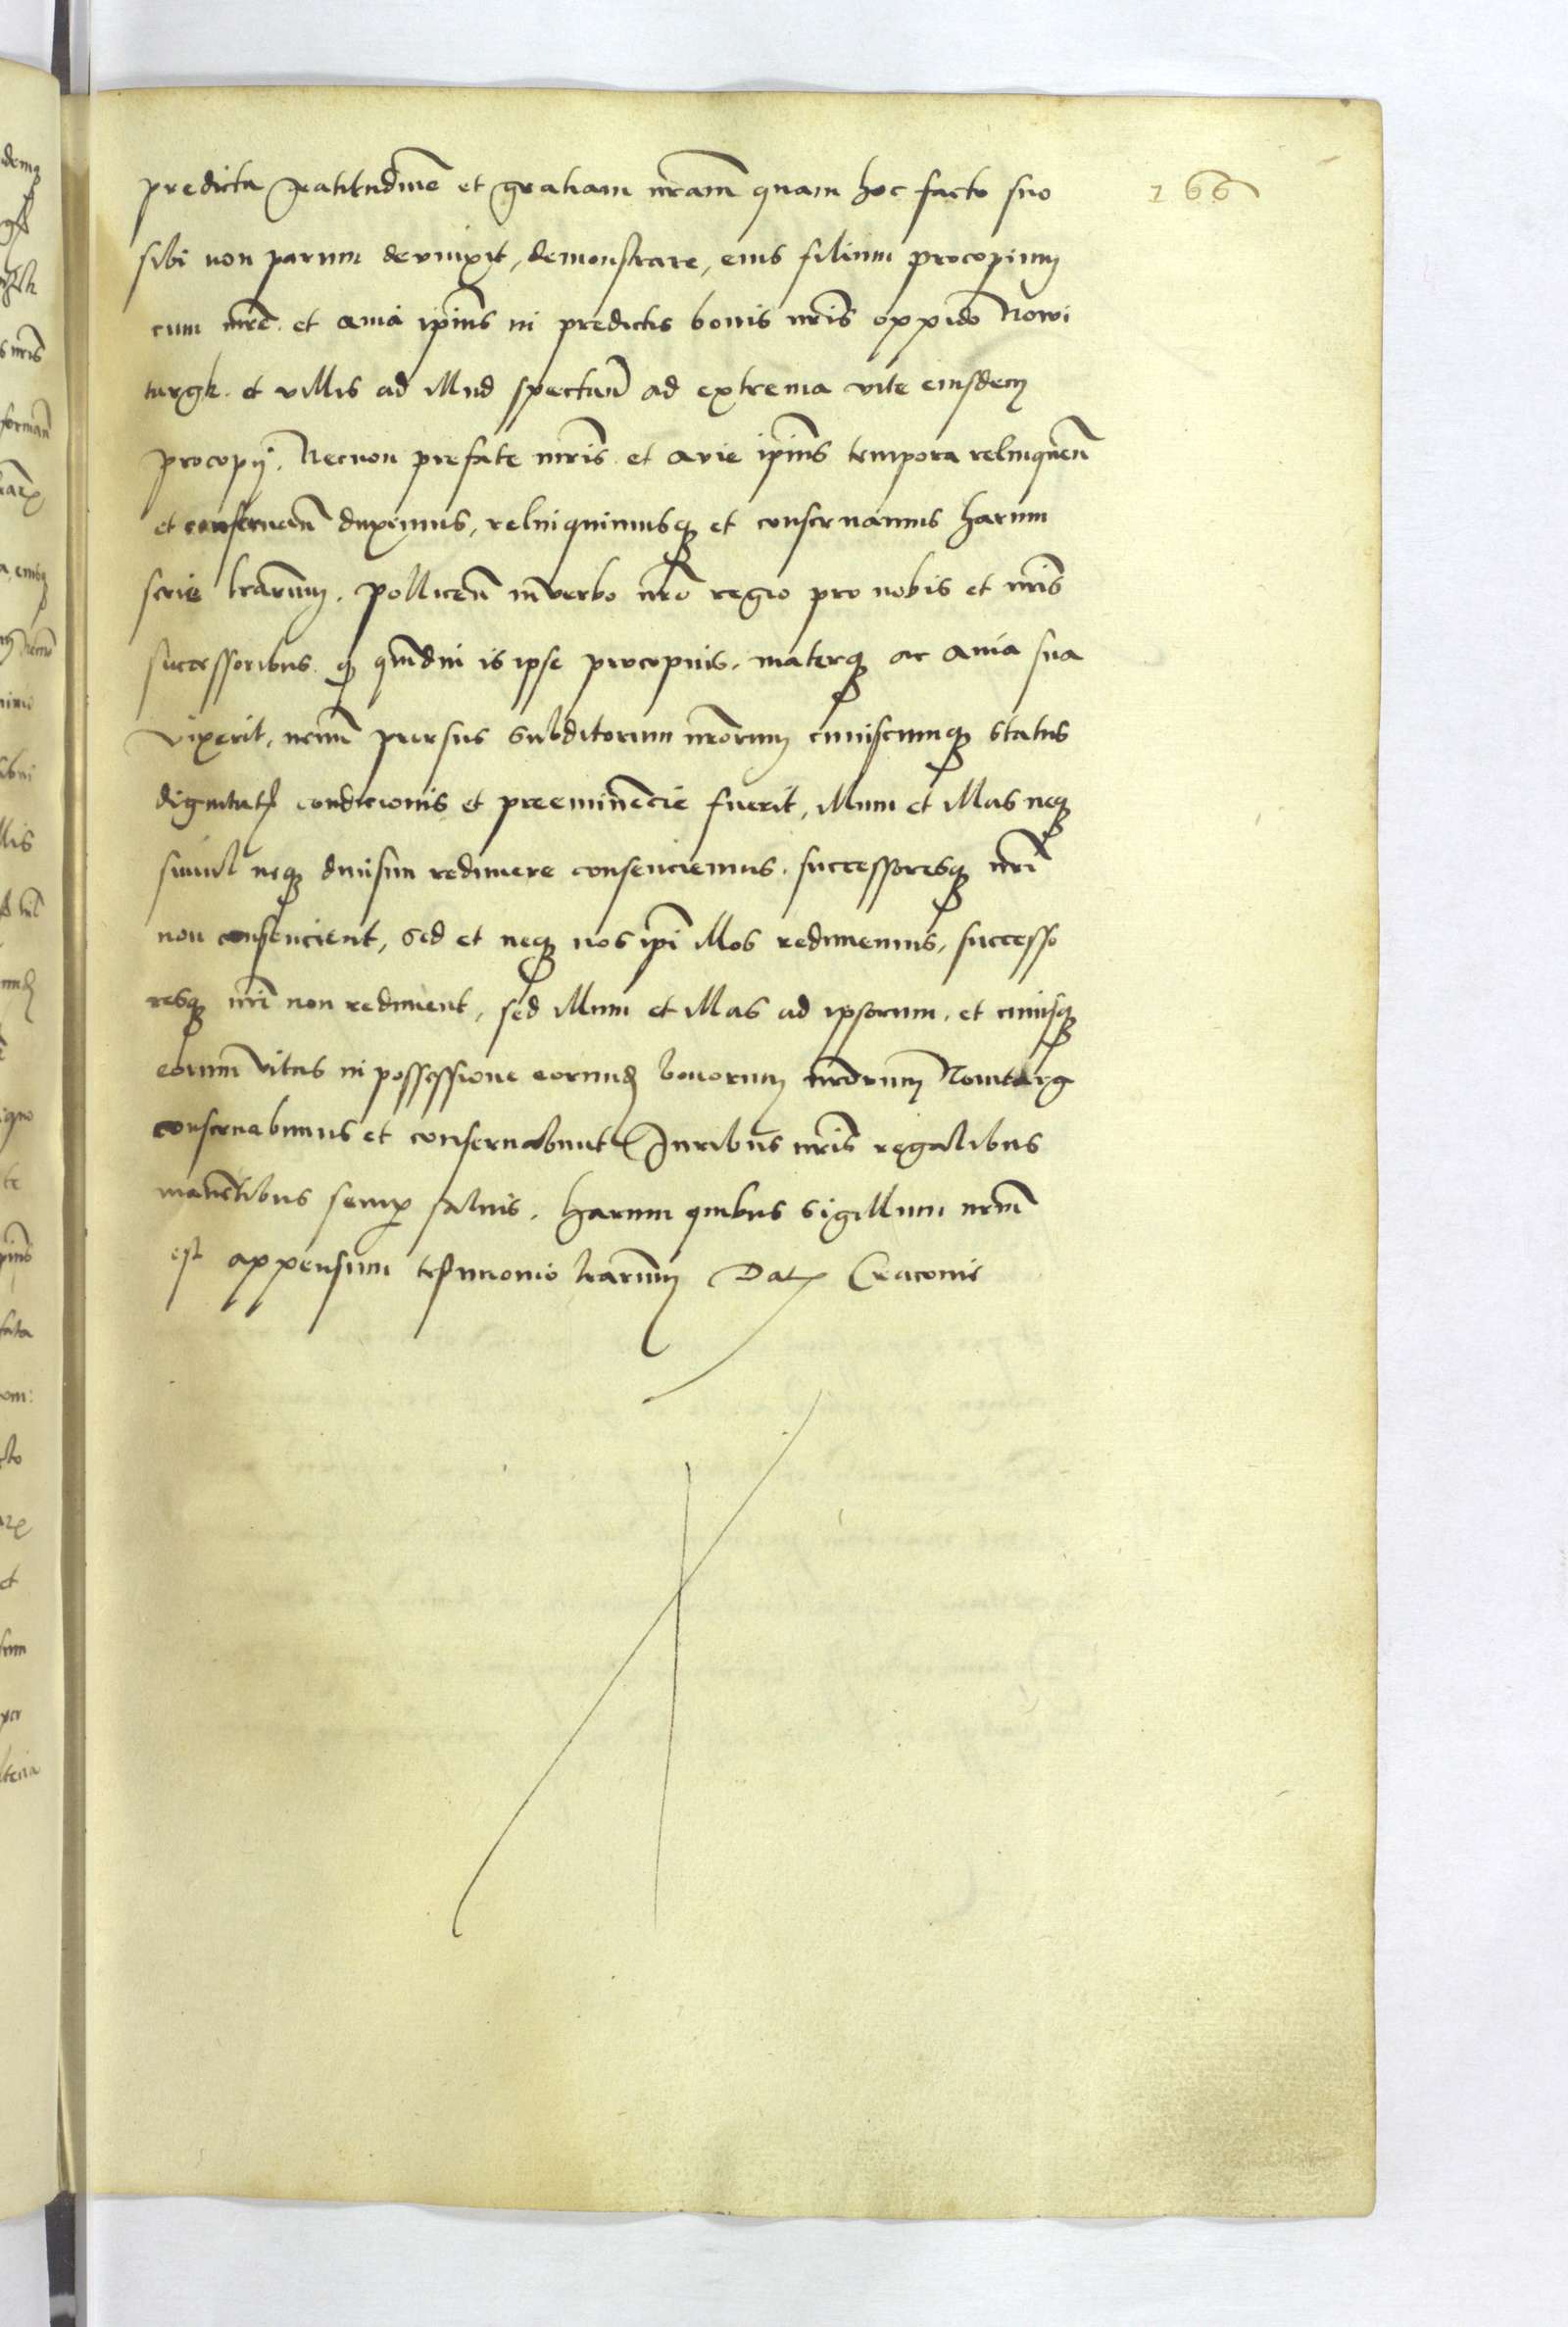 166
predicta gratitudinē et gratiam nr̄am quam hoc facto suo
sibi non parum devinxit, demonstrare, eius filium procopium
cum mr̄e et avia ip̄ius in predictis bonis nr̄is oppido Nowi
targk. et villis ad illud spectan̄ ad extrema vite eiusdem
procopij. Necnon prefate mr̄is et avie ip̄ius tempora relinquen̄
et conservan̄ duximus, relinquimusq et conservamus harum
serie lrarum. pollicen̄ in verbo nr̄o regio pro nobis et nr̄is
successoribus. q qmdiu is ipse procopius. materq ac avia sua
vixerit, nemī prorsus subditorum nr̄orum cuiuscumq status
dignitatis condicionis et preeminēcie fuerit, illum et illas neq
simul neq divisim redimere consenciemus. successoresq nr̄i
non consencient, sed et neq nos ip̄i illos redimemus, successo
resq nr̄i non rediment, sed illum et illas ad ipsorum. et cuiusq
eorum vitas in possessione eorund bonorum nr̄orum Novitarg
conservabimus et conservabunt Iuribus nr̄is regalibus
manētibus semp salvis. Harum quibus sigillum nrūm
est appensum testimonio lrarum Dat Cracovie